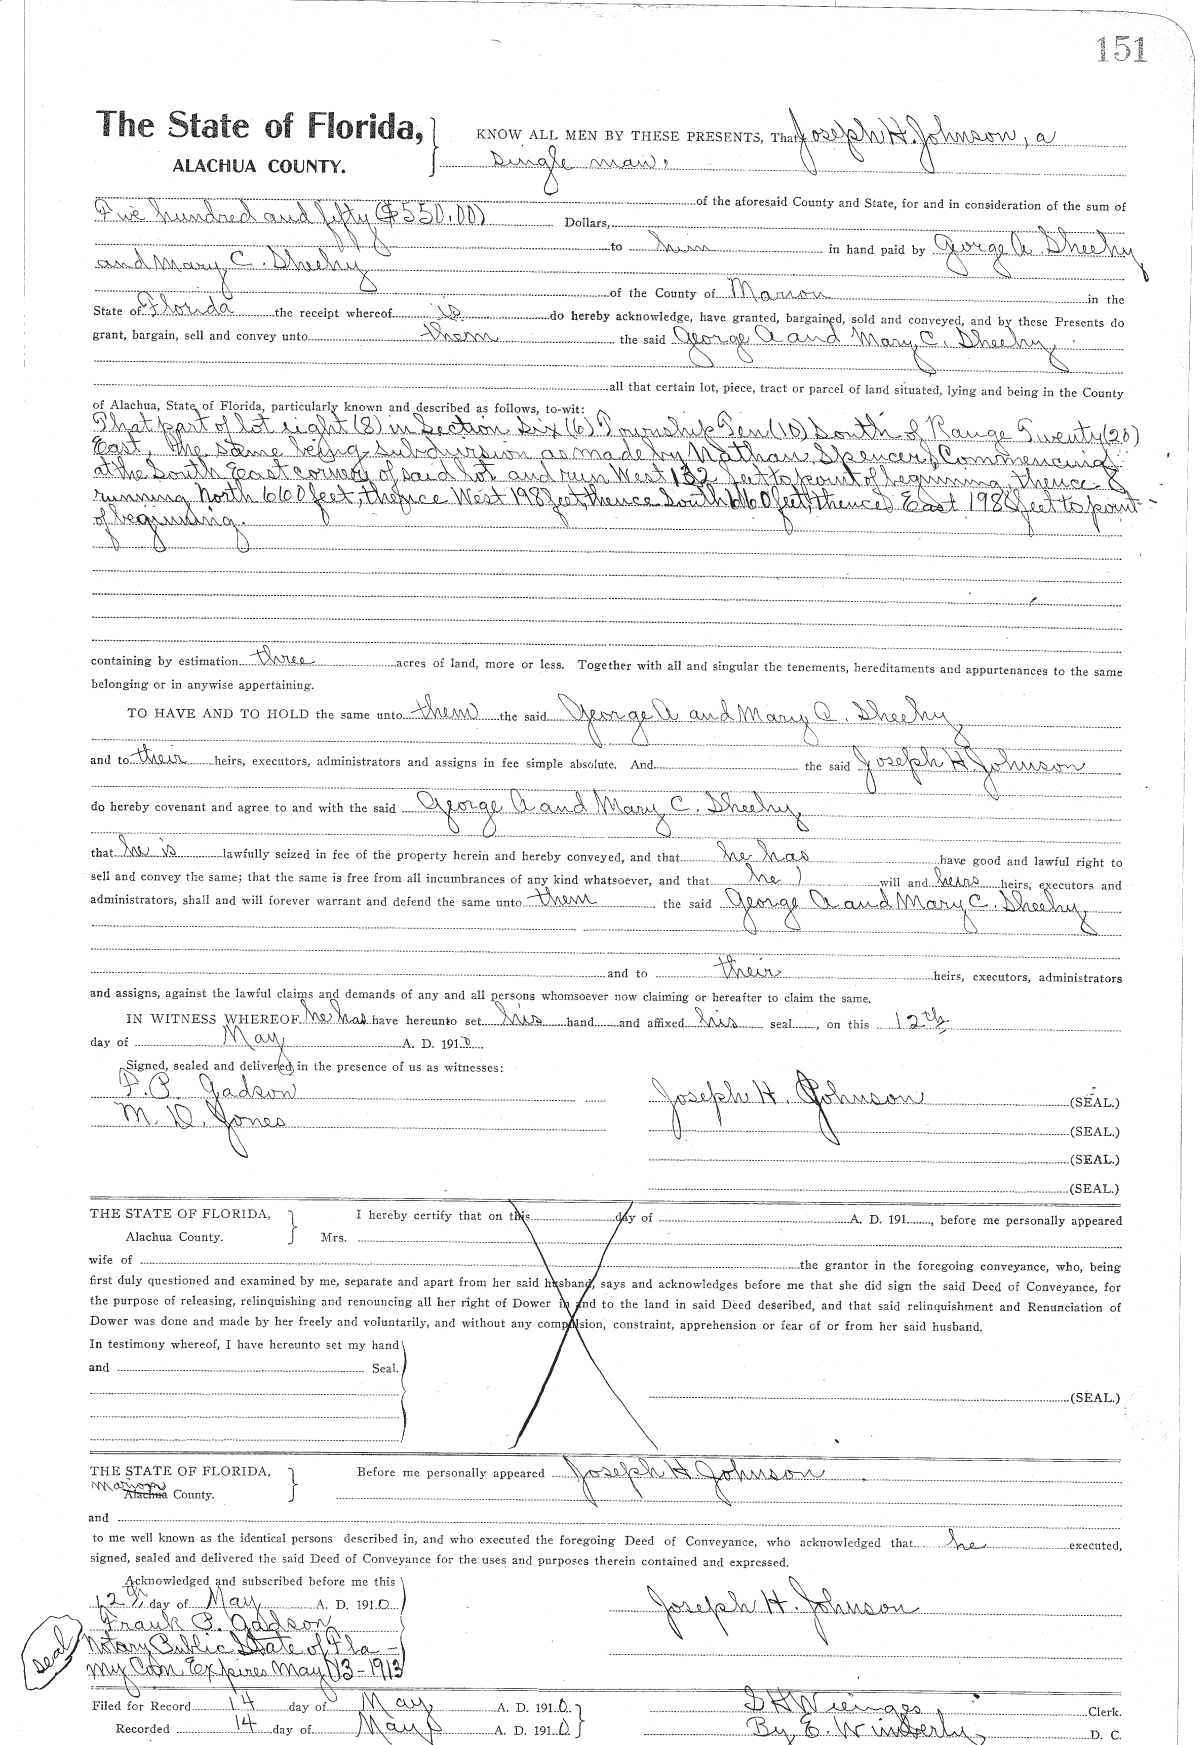 151
The State of Florida,
ALACHUA COUNTY.
KNOW ALL MEN BY THESE PRESENTS, That Joseph H. Johnson, a
single man.
of the aforesaid County and State, for and in consideration of the sum of
Five hundred and fifty ($550.00) Dollars,
to him in hand paid by George A. Sheehy
and Mary C. Sheehy
of the County of Marion in the
State of Florida the receipt whereof is do hereby acknowledge, have granted, bargained, sold and conveyed, and by these Presents do
grant, bargain, sell and convey unto them the said George A and Mary C. Sheehy
all that certain lot, piece, tract or parcel of land situated, lying and being in the County
of Alachua, State of Florida, particularly known and described as follows, to-wit:
That part of lot eight (8) in Section Six (6) Township Ten (10) South of Range Twenty (20)
East, the same being subdivision as made by Nathan Spencer, Commencing
at the South East corner of said lot and run West 132 feet to point of beginning, thence
running North 660 feet, thence West 198 feet, thence South 660 feet, thence East 198 feet to point
of beginning.
containing by estimation three acres of land, more or less. Together with all and singular the tenements, hereditaments and appurtenances to the same
belonging or in anywise appertaining.
TO HAVE AND TO HOLD the same unto them the said George A and Mary C. Sheehy
and to their heirs, executors, administrators and assigns in fee simple absolute. And the said Joseph H. Johnson
do hereby covenant and agree to and with the said George A and Mary C. Sheehy
that he is lawfully seized in fee of the property herein and hereby conveyed, and that he has have good and lawful right to
sell and convey the same; that the same is free from all incumbrances of any kind whatsoever, and that he will and heirs heirs, executors and
administrators, shall and will forever warrant and defend the same unto them the said George A and Mary C. Sheehy
and to their heirs, executors, administrators
and assigns, against the lawful claims and demands of any and all persons whomsoever now claiming or hereafter to claim the same.
IN WITNESS WHEREOF he has have hereunto set his hand and affixed his seal, on this 12th
day of May A. D. 1910
Signed, sealed and delivered in the presence of us as witnesses:
F. P. Gadson
M. D. Jones
Joseph H. Johnson (SEAL.)
(SEAL.)
(SEAL.)
(SEAL.)
THE STATE OF FLORIDA,
Alachua County.
I hereby certify that on this day of A. D. 191, before me personally appeared
Mrs.
wife of the grantor in the foregoing conveyance, who, being
first duly questioned and examined by me, separate and apart from her said husband, says and acknowledges before me that she did sign the said Deed of Conveyance, for
the purpose of releasing, relinquishing and renouncing all her right of Dower in and to the land in said Deed deseribed, and that said relinquishment and Renunciation of
Dower was done and made by her freely and voluntarily, and without any compulsion, constraint, apprehension or fear of or from her said husband.
In testimony whereof, I have hereunto set my hand
and Seal.
(SEAL.)
THE STATE OF FLORIDA,
Marion
Alachua County.
Before me personally appeared Joseph H. Johnson
and
to me well known as the identical persons described in, and who executed the foregoing Deed of Conveyance, who acknowledged that he executed,
signed, sealed and delivered the said Deed of Conveyance for the uses and purposes therein contained and expressed.
Acknowledged and subscribed before me this
12th day of May A. D. 1910
Joseph H. Johnson
Frank P. Gadson
Notary Public State of Fla-
My Com Expires May 13-1913
seal
Filed for Record 14 day of May A. D. 1910
Recorded 14 day of May A. D. 1910
S H Wienges Clerk.
By E. Wimberly, D. C.